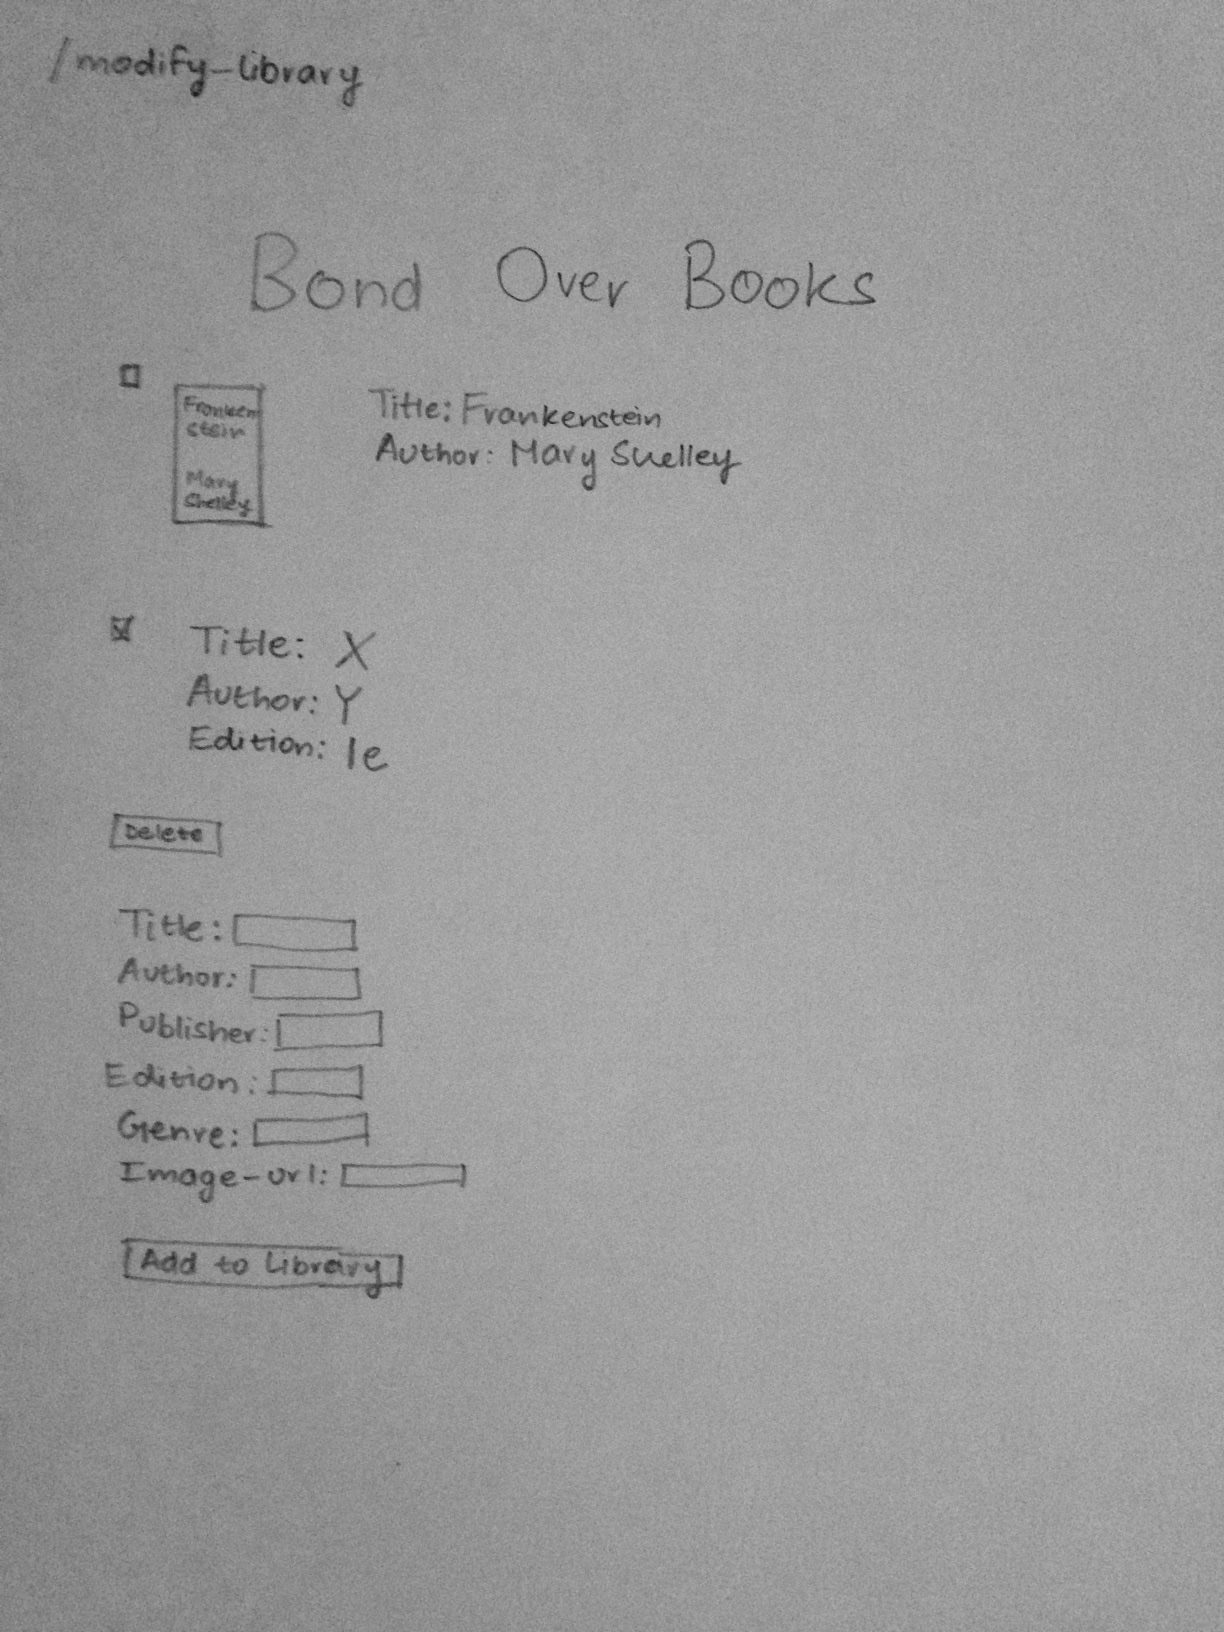 /modify-library
Bond Over Books
Franken
stein
Mary
Shelley
Title: Frankenstein
Author: Mary Shelley
Title: X
Author: Y
Edition: 1e
Delete
Title:
Author:
Publisher:
Edition:
Genre:
Image-url:
Add to Library